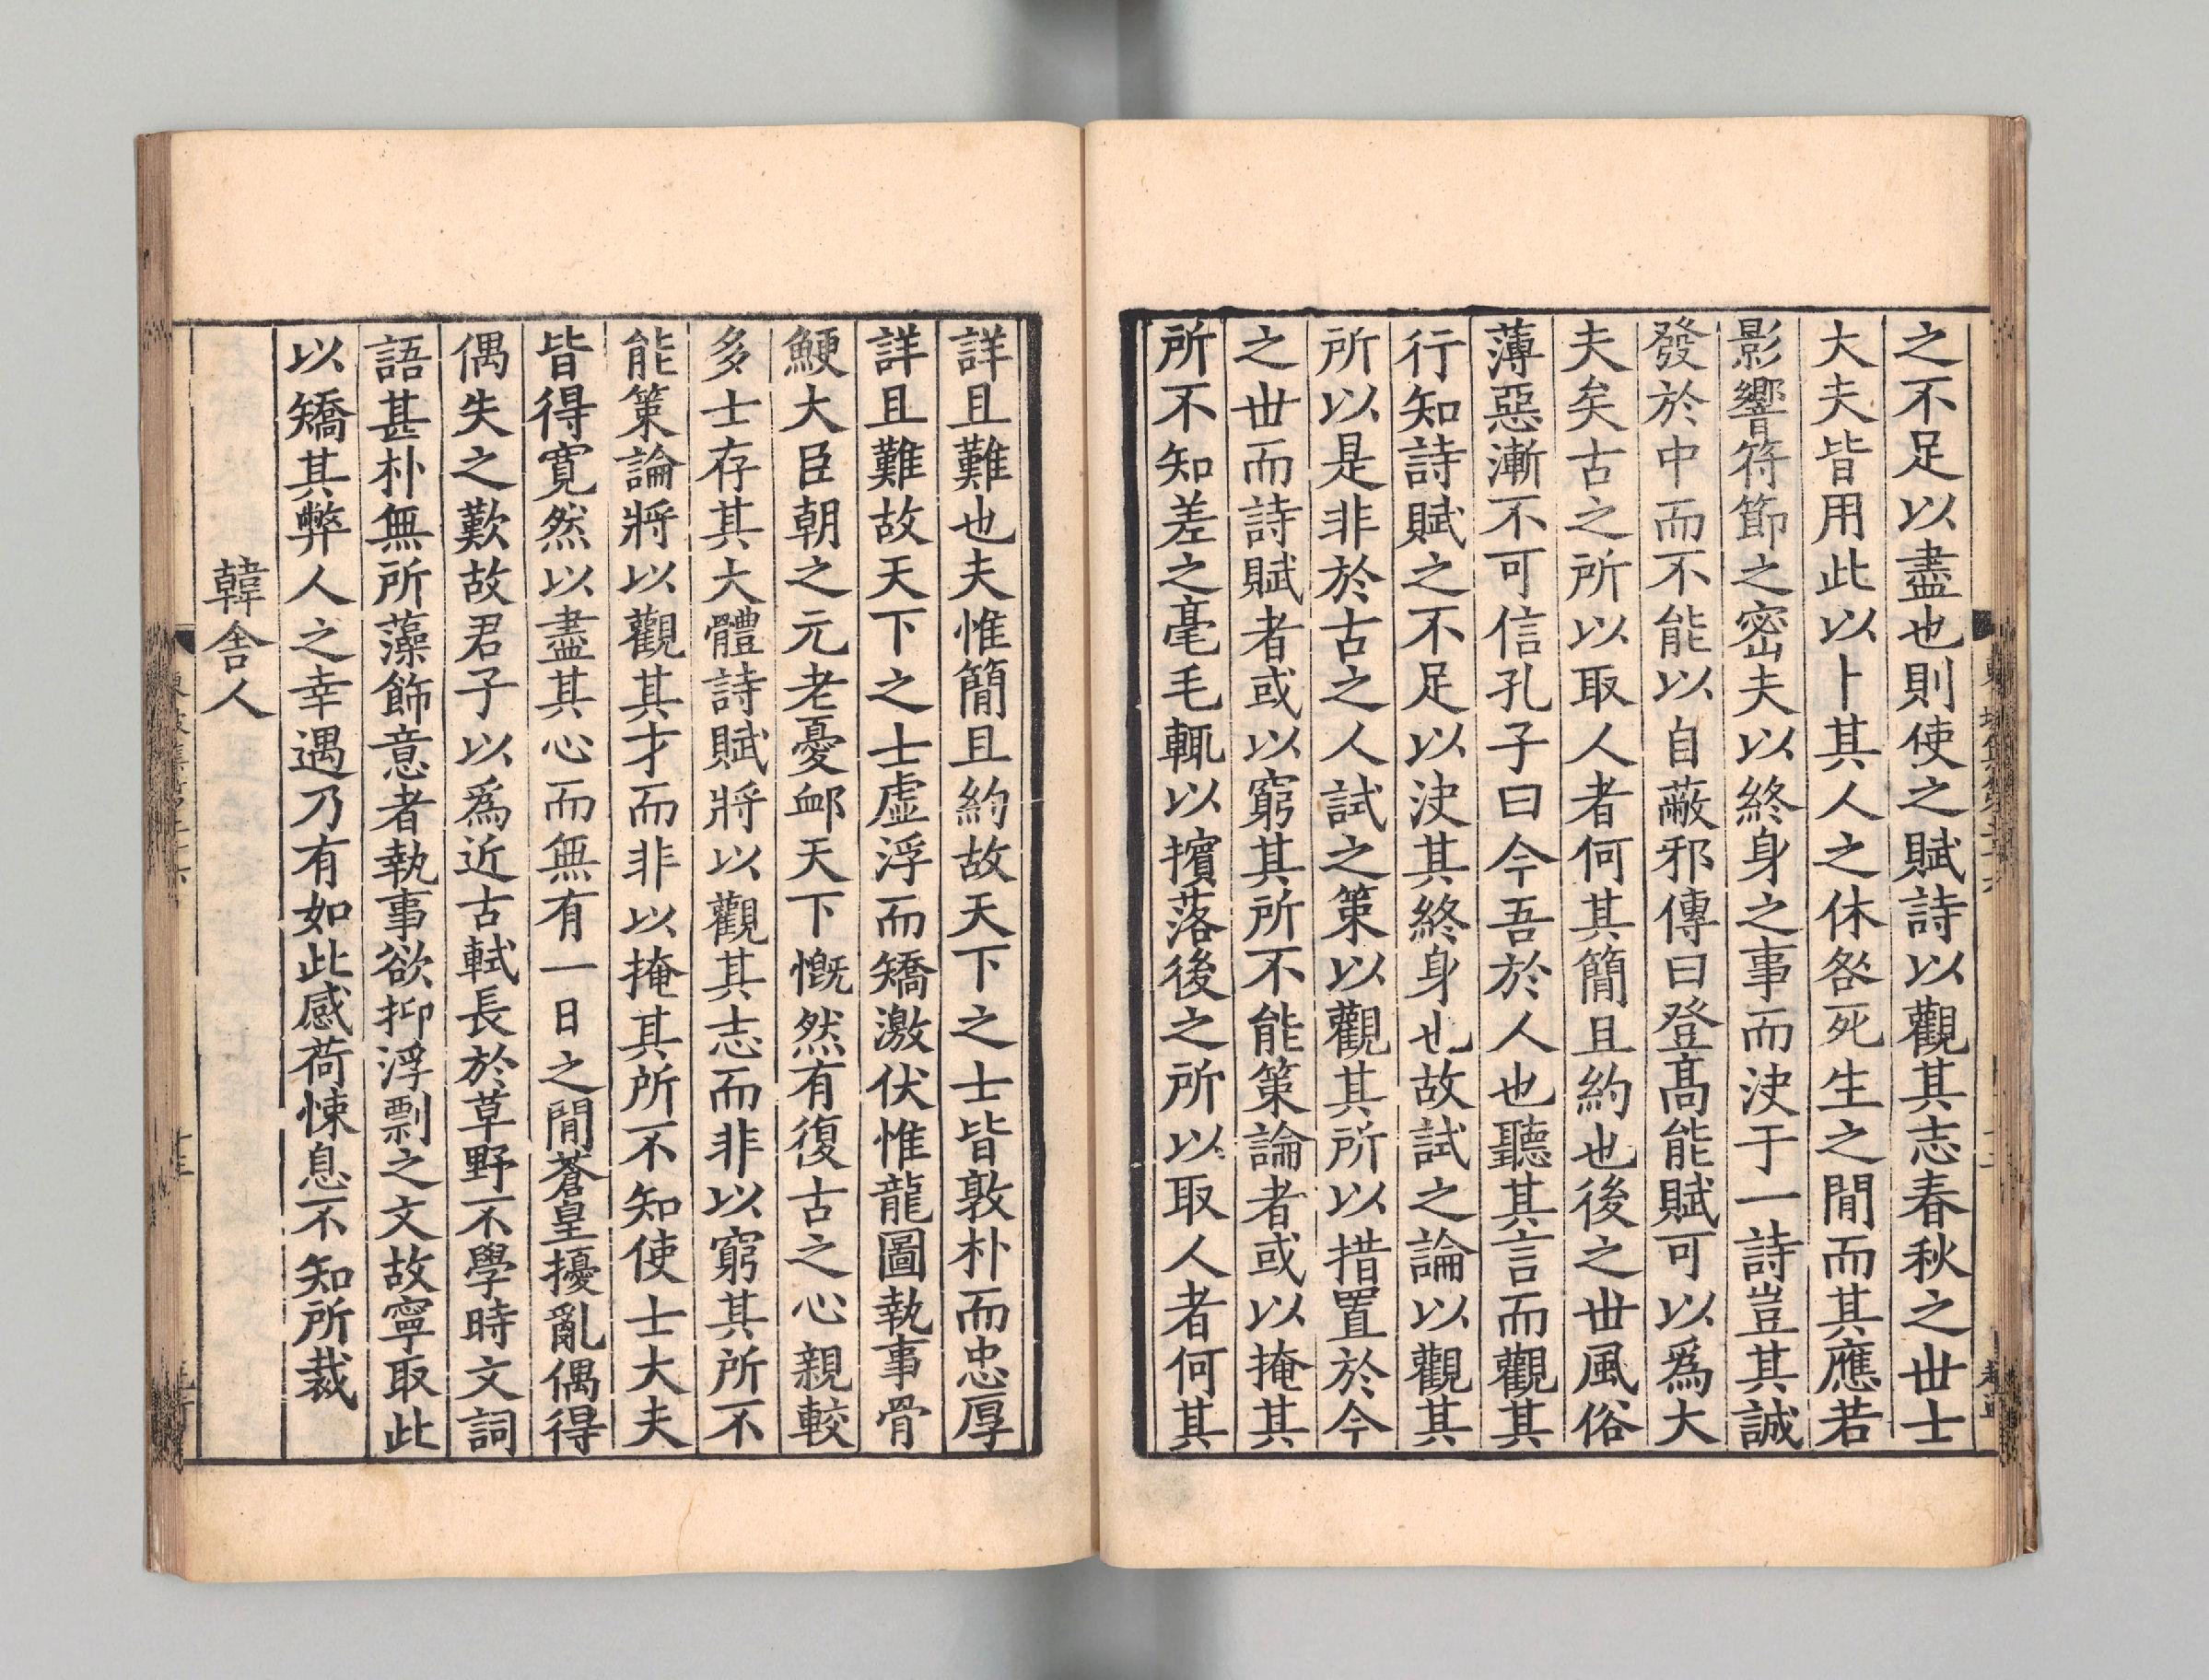 之不足以盡也則使之賦詩以觀其志春秋之世士
大夫皆用此以卜其人之休咎死生之閒而其應若
影響符節之密夫以終身之事而决于一詩豈其誠
發於中而不能以自蔽邪傳曰登髙能賦可以爲大
夫矣古之所以取人者何其簡且約也後之世風俗
薄惡漸不可信孔子曰今吾於人也聽其言而觀其
行知詩賦之不足以决其終身也故試之論以觀其
所以是非於古之人試之策以觀其所以措置於今
之世而詩賦者或以窮其所不能策論者或以掩其
所不知差之毫毛輒以擯落後之所以取人者何其
詳且難也夫惟簡且約故天下之士皆敦朴而忠厚
詳且難故天下之士虛浮而矯激伏惟龍圖執事骨
鯁大臣朝之元老憂卹天下慨然有復古之心親較
多士存其大體詩賦將以觀其志而非以窮其所不
能策論將以觀其才而非以掩其所不知使士大夫
皆得寬然以盡其心而無有一日之閒蒼皇擾亂偶得
偶失之歎故君子以爲近古軾長於草野不學時文詞
語甚朴無所藻飾意者執事欲抑浮剽之文故寧取此
以矯其弊人之幸遇乃有如此感荷悚息不知所裁
韓舍人